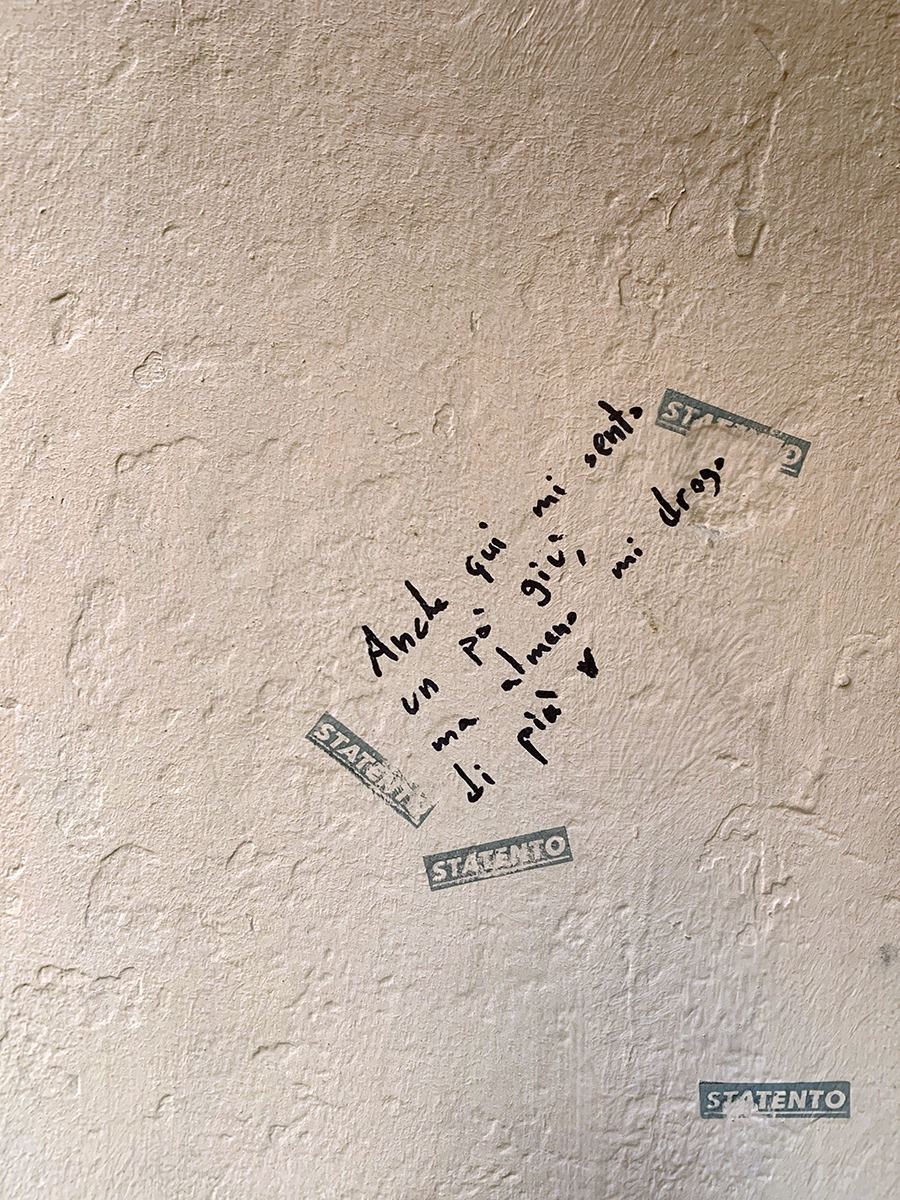 STATENTO
Anche qui mi sento
un pò giù,
ma almeno mi drogo
di più ♥
STATENTO
STATENTO
STATENTO